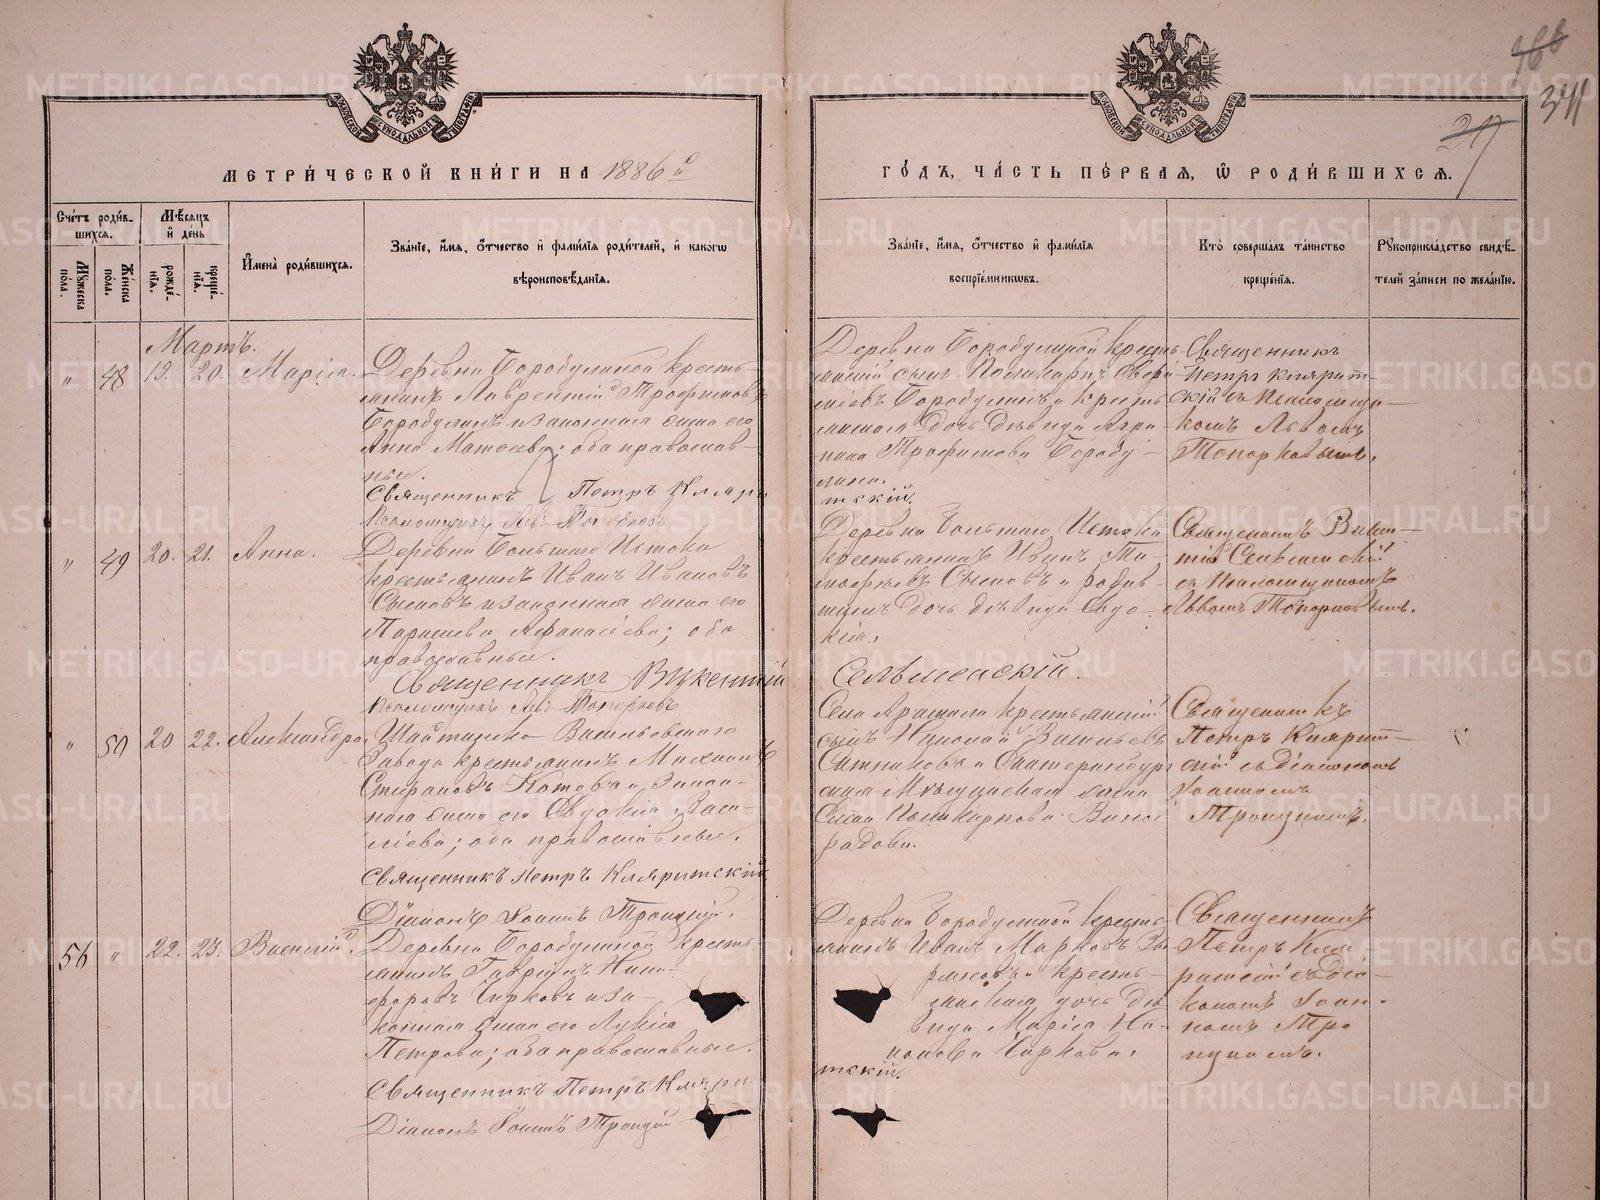 МОСКОВСКОЙ СѴНОДАЛЬНОЙ ТИПОГРАФІИ
МОСКОВСКОЙ СѴНОДАЛЬНОЙ ТИПОГРАФІИ
341
МЕТРИ́ЧЕСКОЙ КНИ́ГИ НА 1886 й
ГО́ДЪ, ЧА́СТЬ ПЕ́РВАЯ, Ѡ РОДИ́ВШИХСЯ.
Сче́тъ роди́в-
шихся.
Му́жеска по́ла.
Же́нска по́ла.
Мѣ́сяцъ
и́ де́нь
рожде́нїя.
креще́нїя.
И҆мена̀ роди́вшихся.
Зва́нїе, и҆́мя, о҆́тчество и҆ фами́лїя роди́телей, и҆ како́гѡ
вѣроисповѣ́данїя.
Зва́нїе, и҆́мя, о҆́тчество и҆ фами́лїя
воспрїе́мникѡвъ.
Кто̀ соверша́лъ та́инство
креще́нїя.
Рꙋкоприкла́дство свидѣ́-
телей за́писи по жела́нїю.
Мартъ.
" 48 19. 20. Марія.
Деревни Бородулиной кресть-
янинъ Лаврентій Трофимовъ
Бородулинъ и законная жена его
Анна Матѳеева; оба православ-
ные.
Священникъ Петръ Кляри
Псаломщикъ Левъ Топорковъ
Деревни Бородулиной кресть-
янскій сынъ Поликарпъ
Бородулинъ и кресть
янская дочь дѣвица Агри-
пина Трофимова Бороду-
лина.
тскій.
Священникъ
Петръ Клярит-
скій съ Псаломщи-
комъ Львомъ
Топорковымъ.
" 49 20. 21. Анна.
Деревни Большаго Истока
крестьянинъ Иванъ Ивановъ
Сысоевъ и законная жена его
Параскева Аѳанасіева; оба
православные.
Священникъ Вукентій
Псаломщикъ Левъ Топорковъ
Деревни Большаго Истока
крестьянинъ Иванъ
Сысоевъ и
дочь дѣвица Евдо-
кія.
Сельменскій.
Священникъ Викен-
тій Сельменскій
съ Псаломщикомъ
Львомъ Топорковымъ.
" 50 20 22. Александра.
Шайтанско Васильевского
Завода крестьянинъ Михаилъ
Котовъ и закон-
ная жена его Евдокія Васи-
ліева; оба православные.
Священникъ Петръ Кляритскій
Діаконъ Іоаннъ Троицкій.
Села Арамиля крестьянскій
сынъ Николай Васильевъ
Ситниковъ и Екатеринбург
ская Мѣщанская жена
Поликарпова Виног
радова.
Священникъ
Петръ Клярит-
скій съ діакономъ
Іоанномъ
Троицкимъ.
56 " 22. 23. Василій.
Деревни Бородулиной кресть
янинъ Гавріилъ Ники-
форовъ Чирковъ и за-
конная жена его Лукія
Петрова; оба православные.
Священникъ Петръ Кляри
Діаконъ Іоаннъ Троицкій
Деревни Бородулиной кресть-
янинъ Иванъ Марковъ
и кресть-
янская дочь дѣ
вица Марія
Чиркова.
тскій.
Священникъ
Петръ Кля
ритскій съ діа-
кономъ Іоан-
номъ Тро
ицкимъ.
METRIKI.GASO-URAL.RU